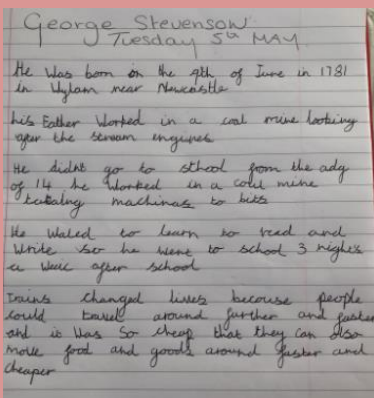 George Stevenson
Tuesday 5th MAY.
He was born on the 9th of June in 1781
in Wylam near Newcastle
his Father worked in a coal mine looking
after the steam engines
He didnt go to school from the adg
of 14 he worked in a coal mine
machinas to bits
He wated to learn to read and
write so he went to school 3 nights
a week after school
Trains changed lives becouse people
could travel around further and faster
and it was so cheap that they can also
move food and goods around faster and
cheaper